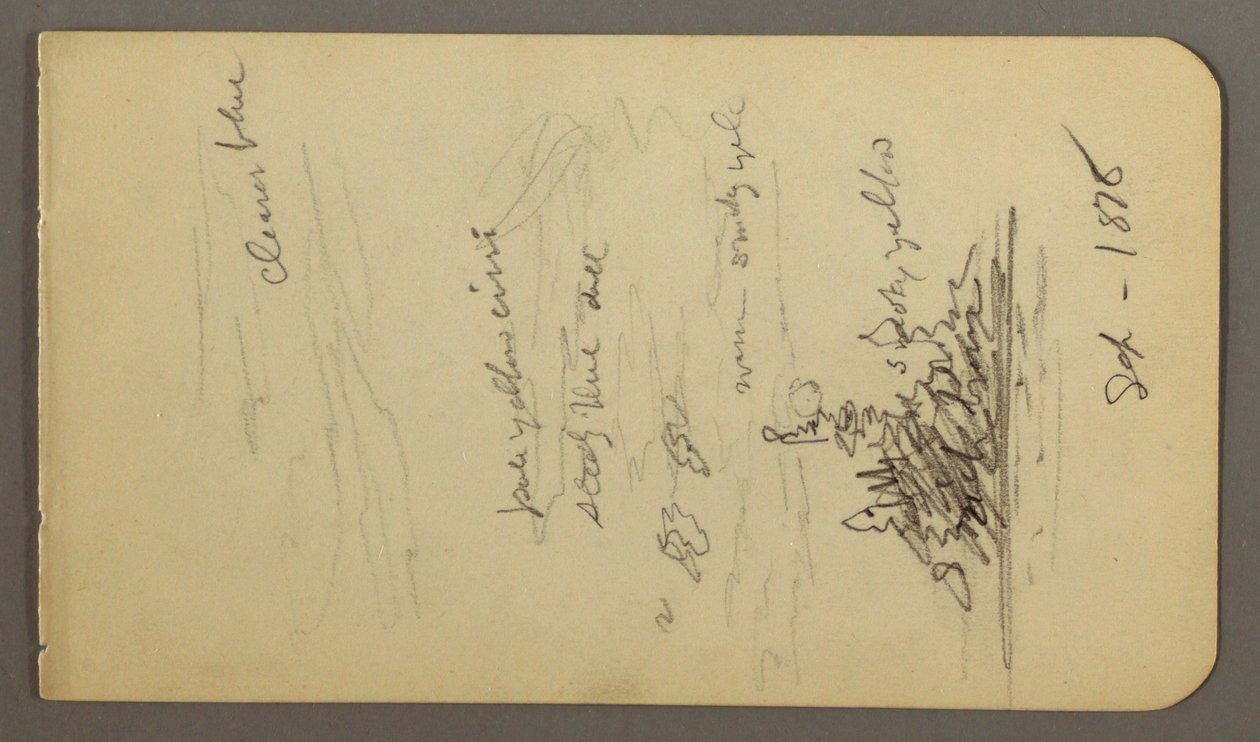 clearer blue
pale yellow
steely blue dull
warm smoky yele
smoky yellow
rich brown
Sep - 1878